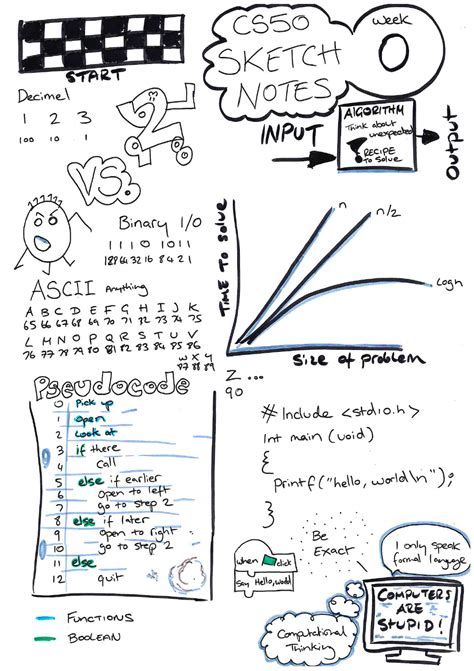 CS50
SKETCH
NOTES
Week
0
START
Decimel
1 2 3
100 10 1
2
VS.
Binary 1/0
1 1 1 0 1 0 1 1
ASCII Anything
A B C D E F G H I J K
65 66 67 68 69 70 71 72 73 74 75
L M N O P Q R S T U V
76 77 78 79 80 81 82 83 84 85 86
W X Y
87 88 89
Z ...
90
INPUT
ALGORITHM
Think about
unexpected
RECIPE
to solve
OUTPUT
TIME TO SOLVE
n
n/2
Logn
Size of problem
Pseudocode
0 Pick up
1 open
2 Look at
3 if there
4 Call
5 else if earlier
6 open to left
7 go to step 2
8 else if later
9 open to right
10 go to step 2
11 else
12 quit
FUNCTIONS
BOOLEAN
# Include <stdio.h>
Int main (void)
{
Printf("hello, world\n");
}
when click
Say Hello, world
Be
Exact
I only speak
formal language
COMPUTERS
ARE
STUPID!
Computational
Thinking